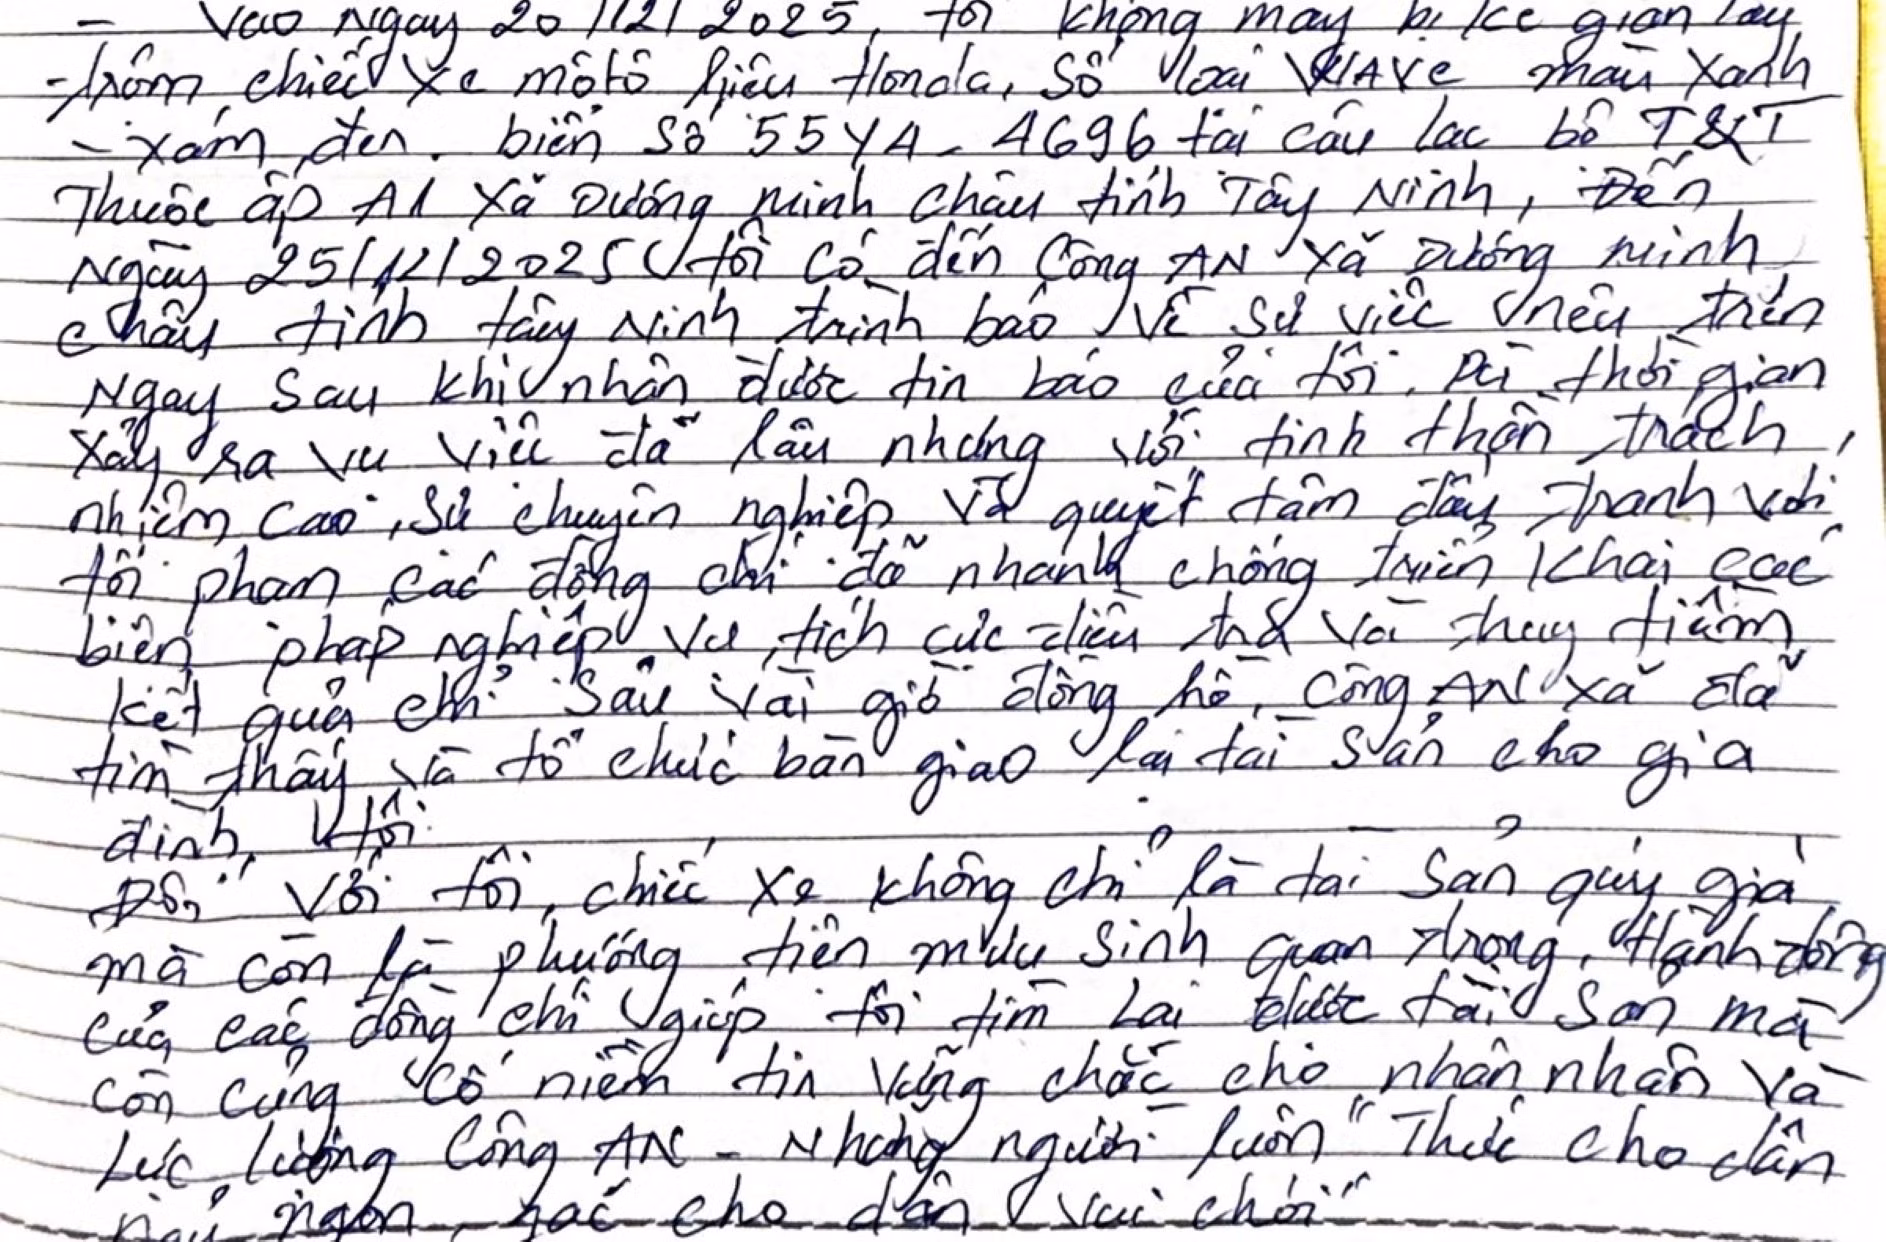 - Vào Ngày 20/12/2025, tôi không may bị kẻ gian lấy
trộm chiếc xe môtô hiệu Honda, Số loại WAVe màu xanh
- xám đen. biển số 55Y4 - 4696 tại câu lạc bộ T&T
Thuộc ấp A1 Xã Dương minh châu tỉnh Tây Ninh, Đến
Ngày 25/12/2025 tôi có đến Công AN Xã Dương minh
châu tỉnh tây Ninh trình báo về sự việc nêu trên
Ngay sau khi nhận được tin báo của tôi. Dù thời gian
xảy ra vụ việc đã lâu nhưng với tinh thần trách
nhiệm cao, sự chuyên nghiệp và quyết tâm đấu tranh với
tội phạm các đồng chí đã nhanh chóng triển khai các
biện pháp nghiệp vụ, tích cực điều tra và truy tìm
kết quả chỉ sau vài giờ đồng hồ, công AN xã đã
tìm thấy và tổ chức bàn giao lại tài sản cho gia
đình, tôi.
Đối với tôi, chiếc xe không chỉ là tài sản quý giá
mà còn là phương tiện mưu sinh quan trọng. Hành động
của các đồng chí giúp tôi tìm lại được tài sản mà
còn củng cố niềm tin vững chắc cho nhân nhân và
Lực lượng Công AN - Những người luôn "Thức cho dân
ngủ ngon, gác cho dân vui chơi"